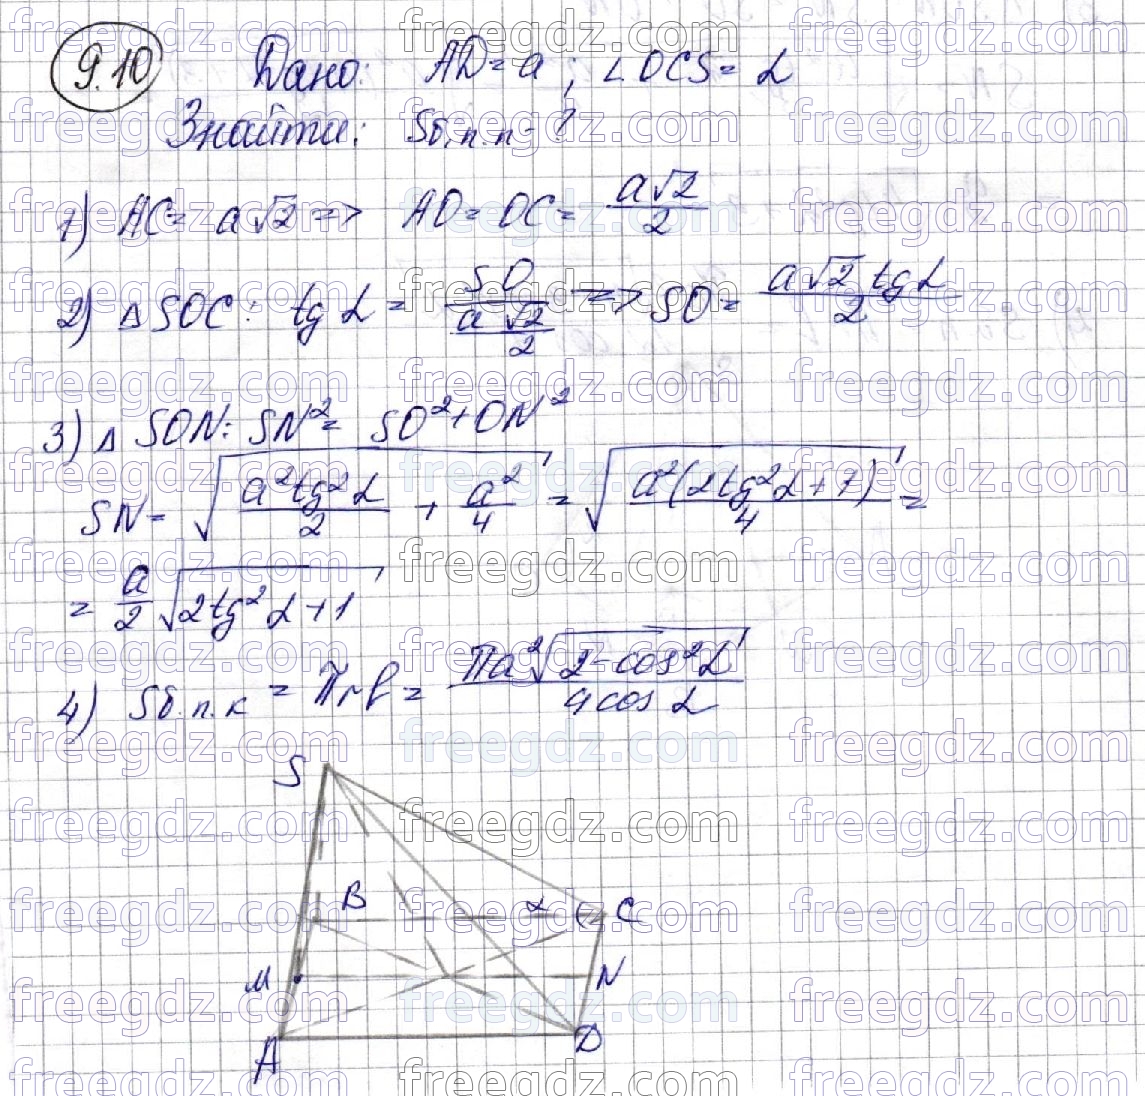 9.10 Дано: AD = a ; ∠OCS = α
Знайти: Sб.п.п - ?
1) AC = a√2 => AO = OC = a√2/2
2) △SOC: tg α = SO/(a√2/2) => SO = a√2 tg α/2
3) △SON: SN² = SO² + ON²
SN = √(a² tg² α/2 + a²/4) = √(a²(2tg² α + 1)/4) =
= a/2 √(2tg² α + 1)
4) Sб.п.к = πrl = πa²√(2 - cos² α)/4cos α
S
B α C
M N
A D
freegdz.com